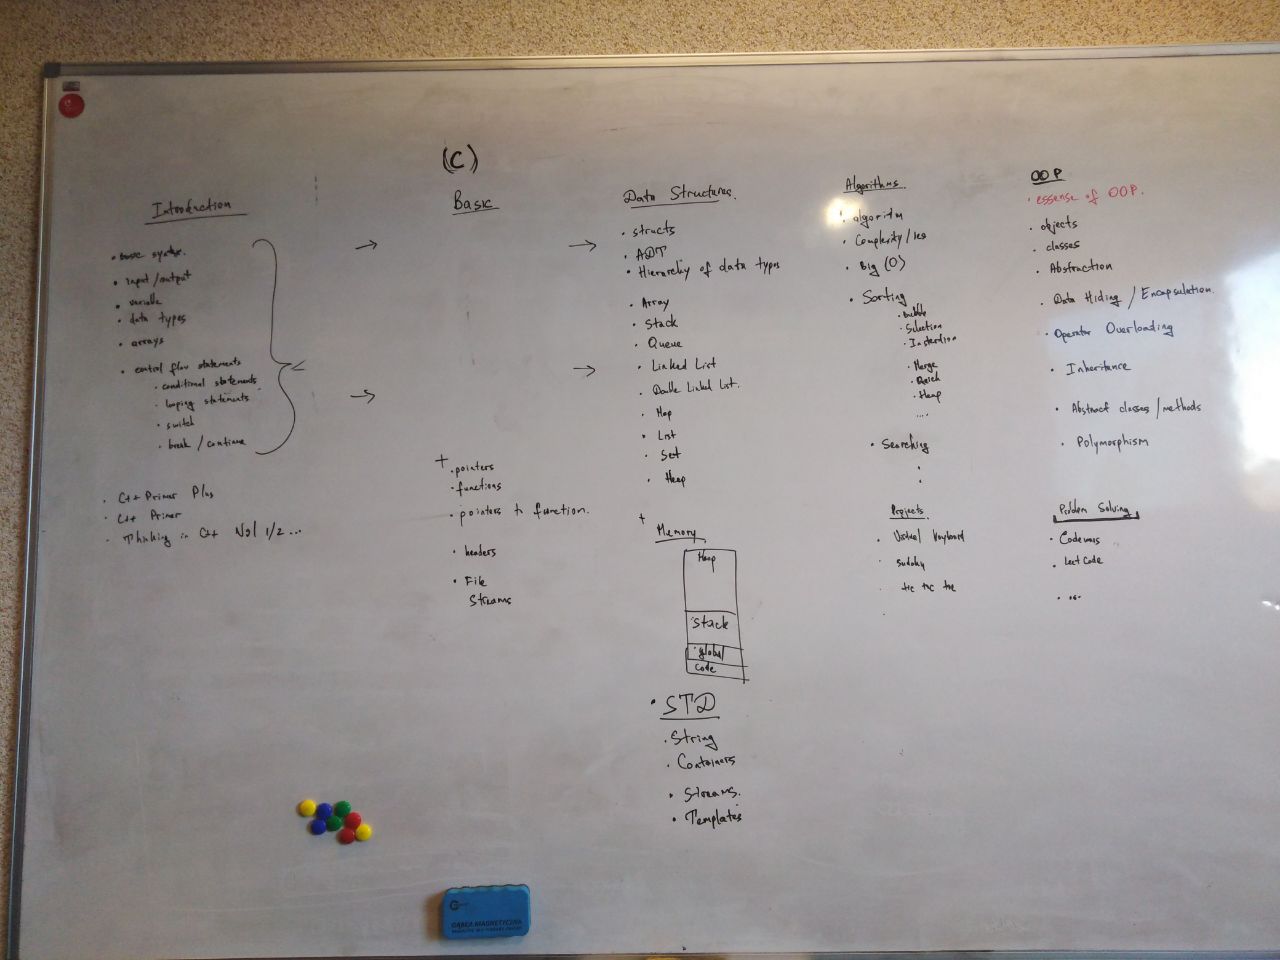 (C)
Introduction
• basic syntax.
• input/output
• variable
• data types
• arrays
• control flow statements
• conditional statements
• looping statements
• switch
• break / continue
• C++ Primer Plus
• C++ Primer
• Thinking in C++ Vol 1/2 ...
Basic
+
• pointers
• functions
• pointers to function.
• headers
• File
Streams
Data Structures.
• structs
• ADT
• Hierarchy of data types
• Array
• Stack
• Queue
• Linked List
• Double Linked List.
• Map
• List
• Set
• Heap
+
Memory
Heap
Stack
global
code
• STD
• String
• Containers
• Streams.
• Templates
Algorithms
• algorithm
• Complexity/
• Big (O)
• Sorting
• Bubble
• Selection
• Insertion
• Merge
• Quick
• Heap
....
• Searching
Projects
• Virtual keyboard
• sudoku
• tic tac toe
OOP
• essense of OOP.
• objects
• classes
• Abstraction
• Data Hiding / Encapsulation.
• Operator Overloading
• Inheritance
• Abstract classes/methods
• Polymorphism
Problem Solving
• Codewars
• LeetCode
• ...
GĄBKA MAGNETYCZNA